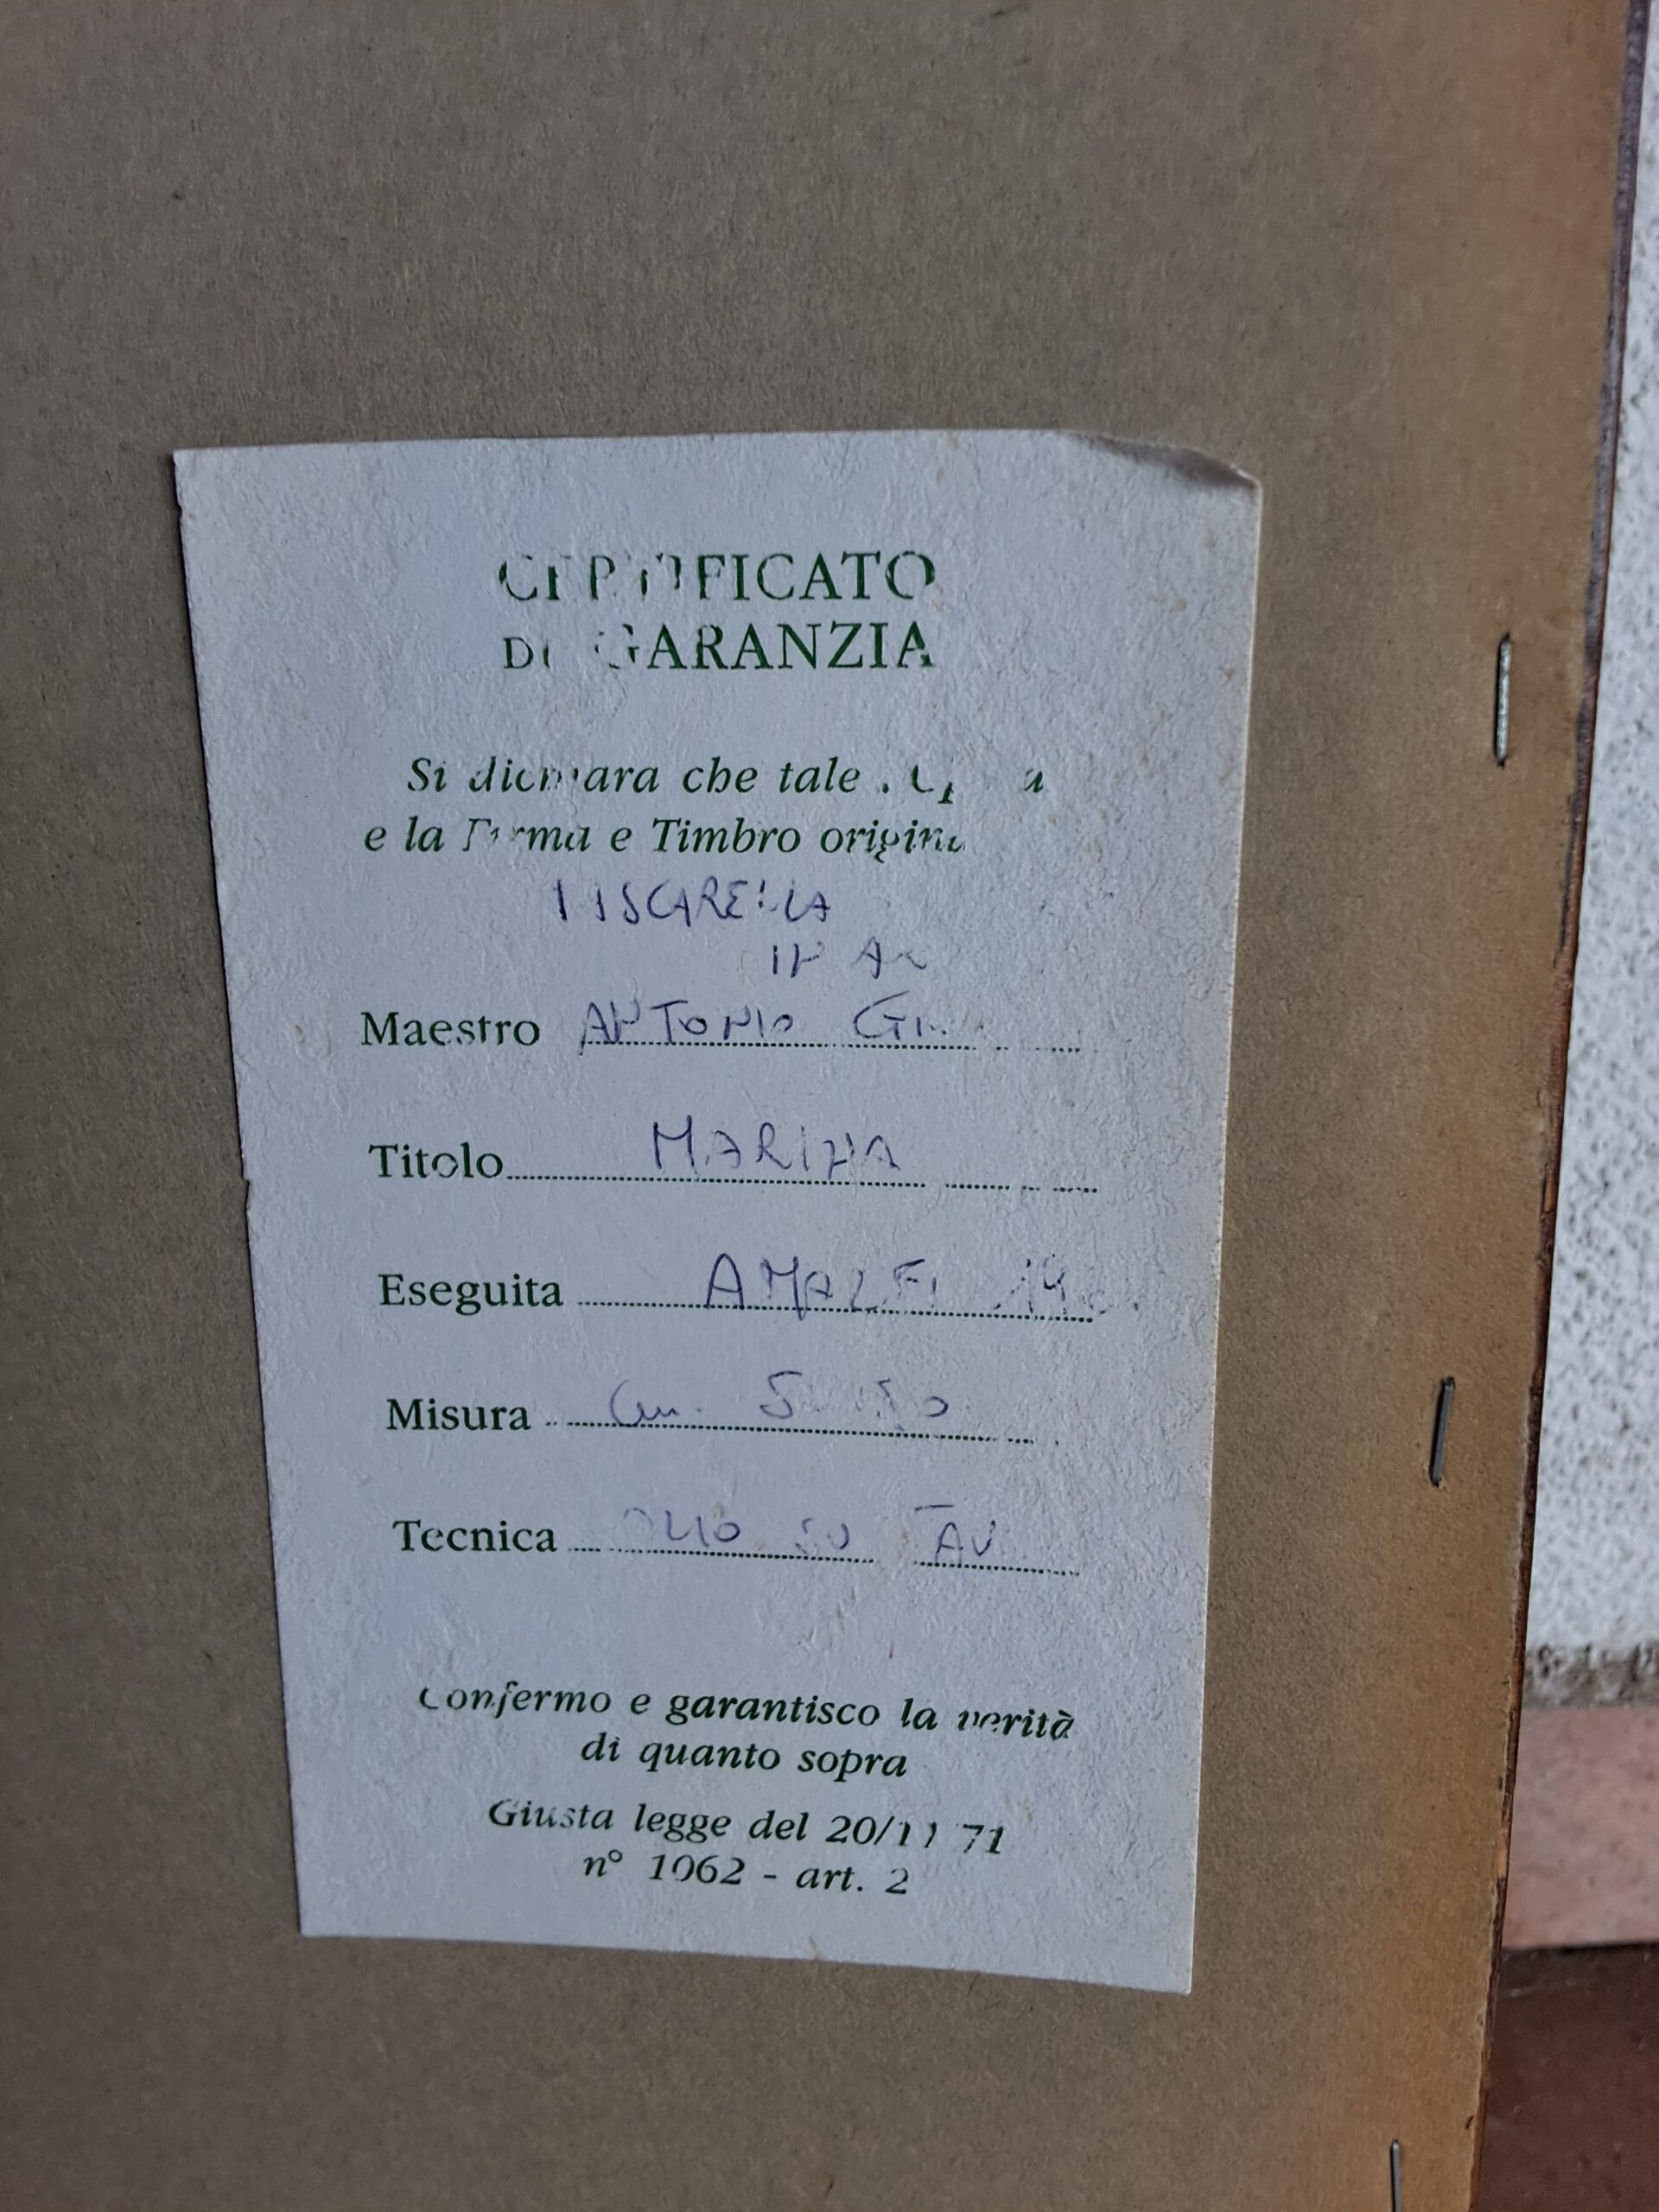 CERTIFICATO
DI GARANZIA
Si dichiara che tale
e la Firma e Timbro
Maestro ANTONIO
Titolo MARINA
Eseguita AMALFI
Misura Cm.
Tecnica OLIO SU
Confermo e garantisco la verità
di quanto sopra
Giusta legge del 20/11/71
n° 1062 - art. 2